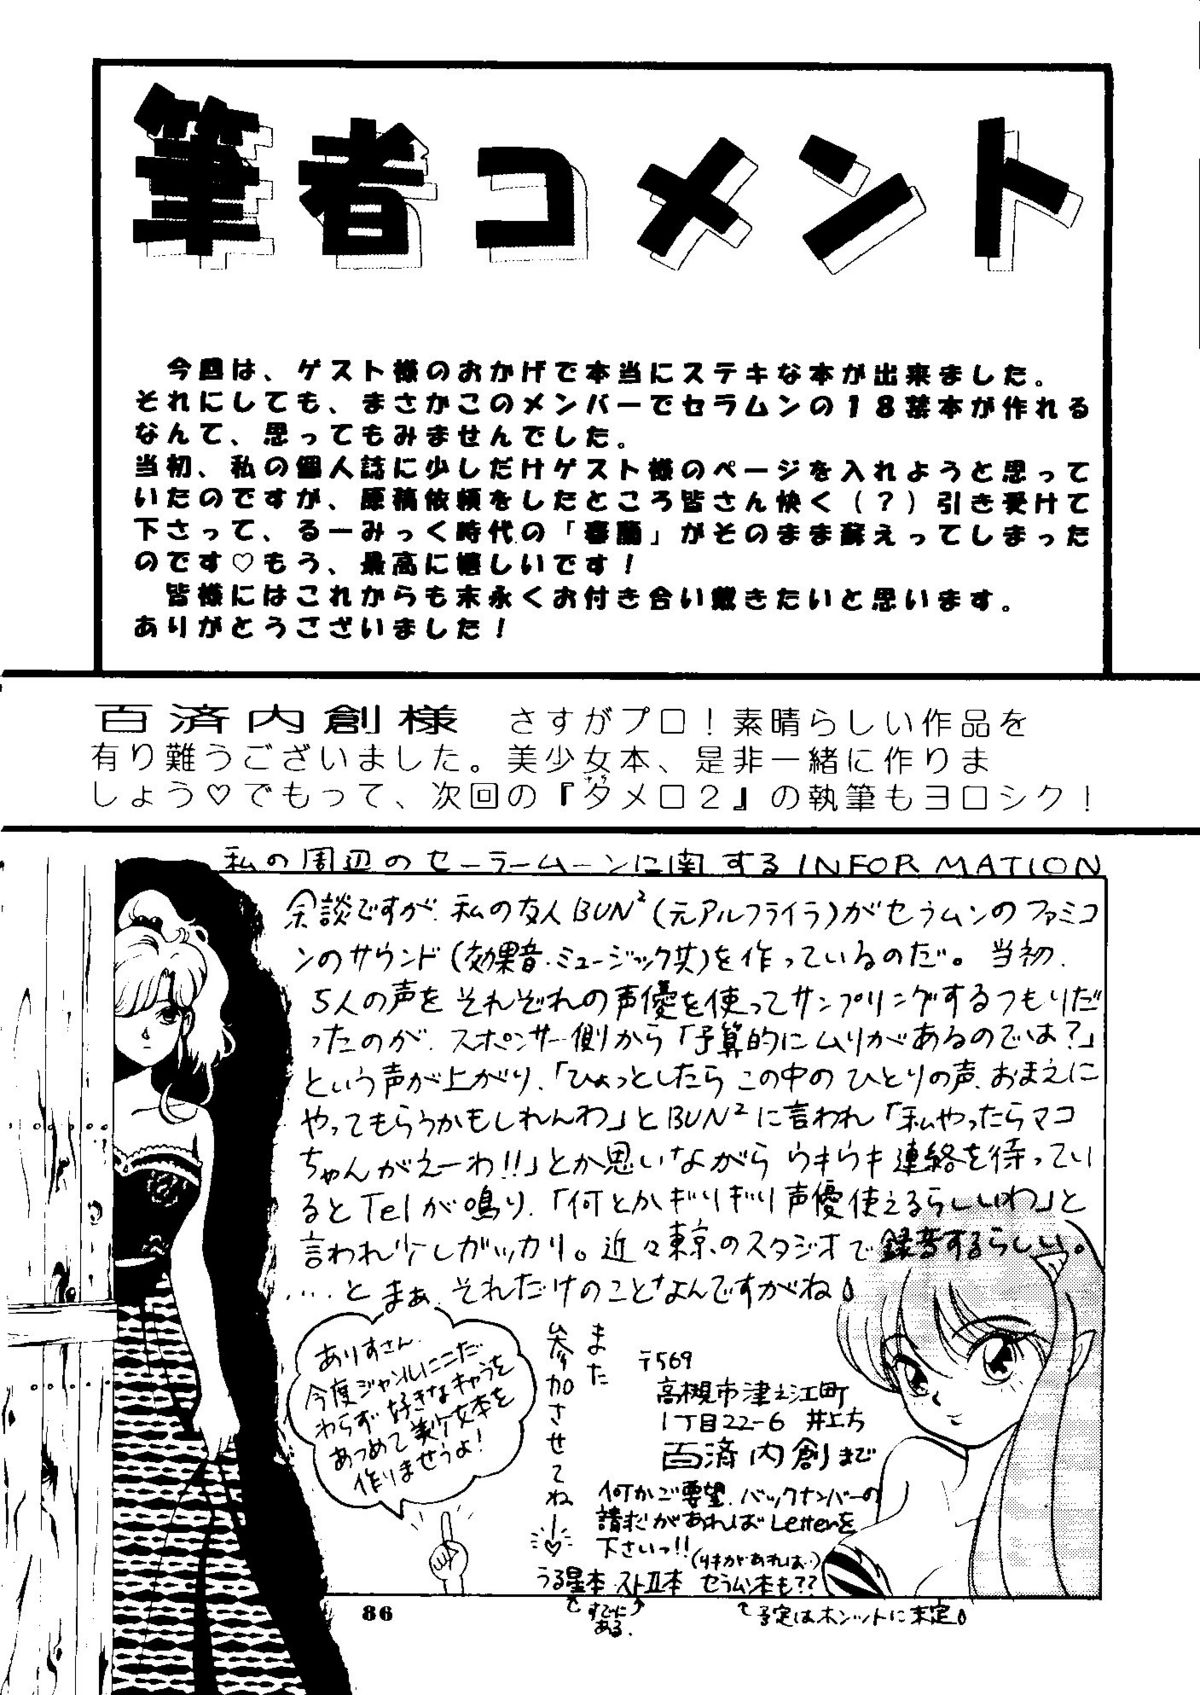 筆者コメント
今回は、ゲスト様のおかげで本当にステキな本が出来ました。
それにしても、まさかこのメンバーでセラムンの18禁本が作れる
なんて、思ってもみませんでした。
当初、私の個人誌に少しだけゲスト様のページを入れようと思って
いたのですが、原稿依頼をしたところ皆さん快く(?)引き受けて
下さって、るーみっく時代の「春蘭」がそのまま蘇えってしまった
のです♡もう、最高に嬉しいです!
皆様にはこれからも末永くお付き合い戴きたいと思います。
ありがとうございました!
百済内創様 さすがプロ!素晴らしい作品を
有り難うございました。美少女本、是非一緒に作りま
しょう♡でもって、次回の『タメロ2』の執筆もヨロシク!
私の周辺のセーラームーンに関するINFORMATION
余談ですが、私の友人BUN²(元アルフライラ)がセラムンのファミコ
ンのサウンド(効果音・ミュージック共)を作っているのだ。当初、
5人の声をそれぞれの声優を使ってサンプリングするつもりだ
ったのが、スポンサー側から「予算的にムリがあるのでは?」
という声が上がり、「ひょっとしたらこの中のひとりの声、おまえに
やってもらうかもしれんわ」とBUN²に言われ「私やったらマコ
ちゃんがえーわ!!」とか思いながらウキウキ連絡を待ってい
るとTelが鳴り、「何とかギリギリ声優使えるらしいわ」と
言われ少しガッカリ。近々東京のスタジオで録音するらしい。
……とまぁ、それだけのことなんですがね
ありすさん、
今度ジャンルにこだ
わらず好きなキャラを
あつめて美少女本を
作りませうよ!
また
参加させてね—♡
〒569
高槻市津之江町
1丁目22-6 井上方
百済内創まで
何かご要望、バックナンバーの
請求があればLetterを
下さいっ!!
うる星本 ストⅡ本 セラムン本も??
すでに
ある.
予定はホンットに未定
86